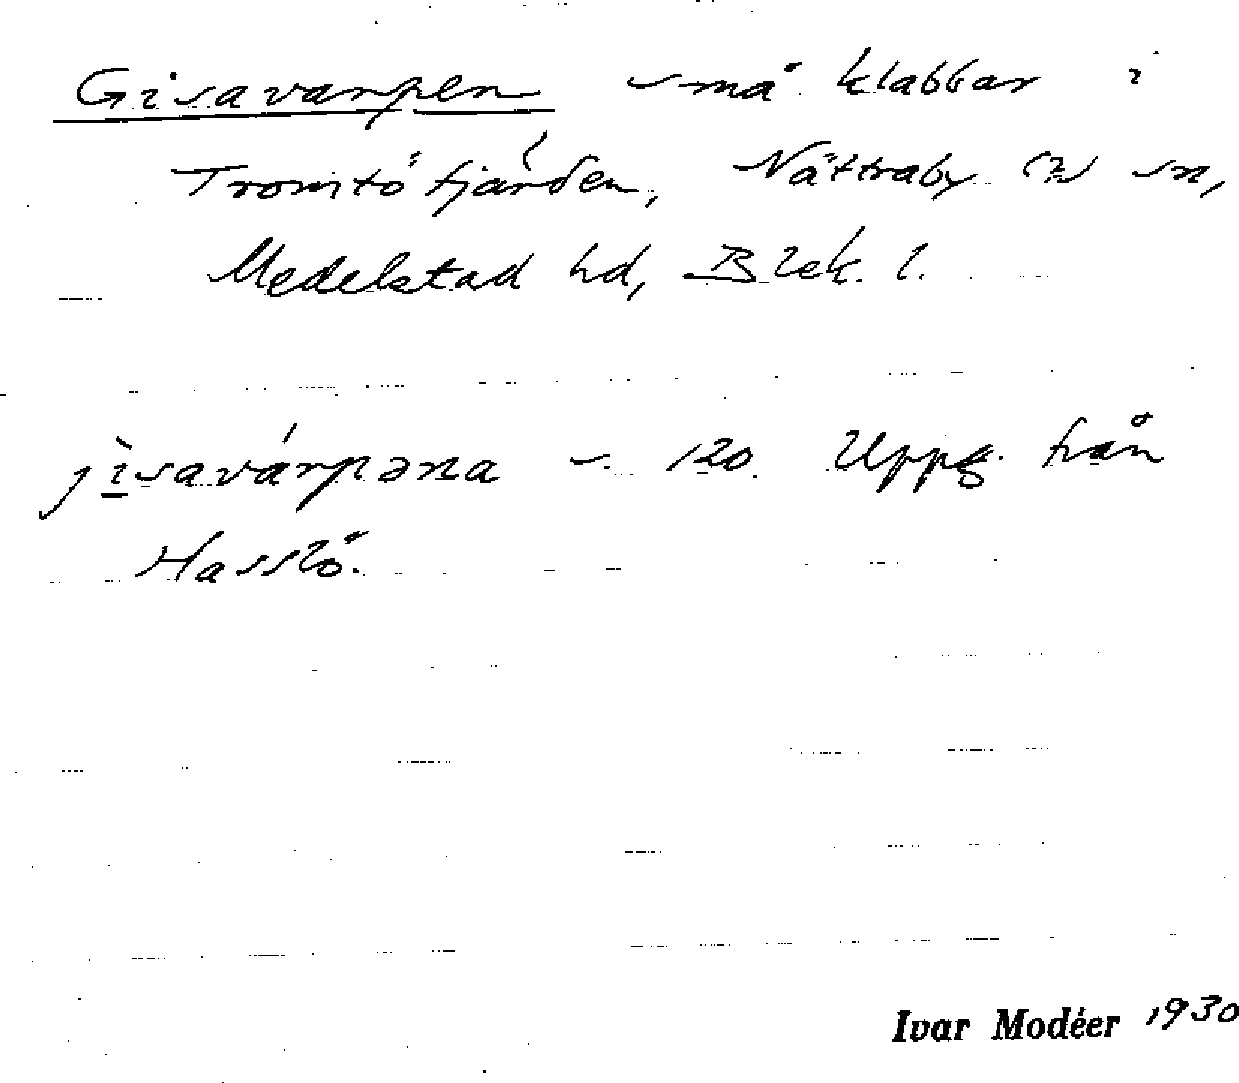 Gisavarpen små klabbar i
Tromtö fjärden, Nättraby (?) sn,
Medelstad hd, Blek. l.
jìsavárpəna s. 120. Uppg. från
Hasslö.
Ivar Modéer 1930